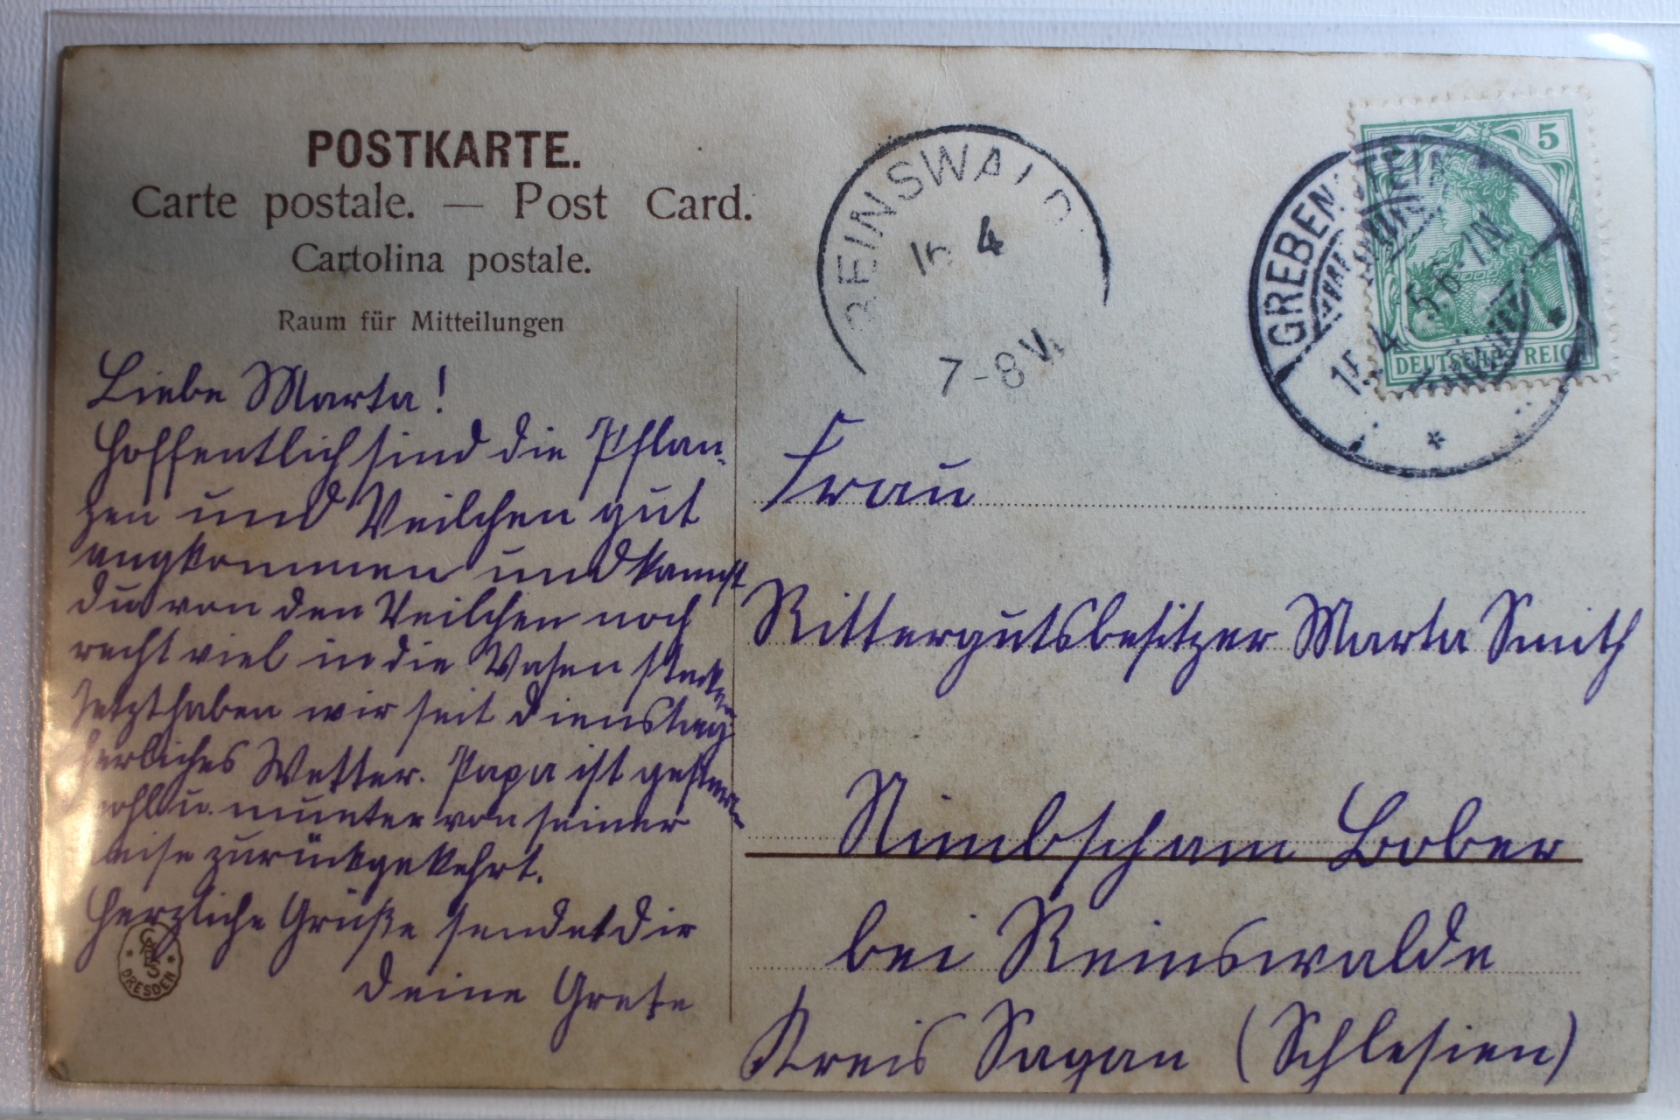 POSTKARTE.
Carte postale. — Post Card.
Cartolina postale.
Raum für Mitteilungen
Liebe Marta!
Hoffentlich sind die Pflan-
zen und Veilchen gut
angkommen und kannst
du von den Veilchen noch
recht viel in die Vasen stecken
Jetzt haben wir seit Dienstag
herliches Wetter. Papa ist gestern
wohl u. munter von seiner
Reise zurückgekehrt.
Herzliche Grüße sendet dir
Deine Grete
DRESDEN
REINSWALD
16 4
7-8V
GREBENSTEIN
15.4. 5 6-7N
5
DEUTSCHES REICH
Frau
Rittergutsbesitzer Marta Smith
Nimbscham Bober
bei Reinswalde
Kreis Sagan (Schlesien)